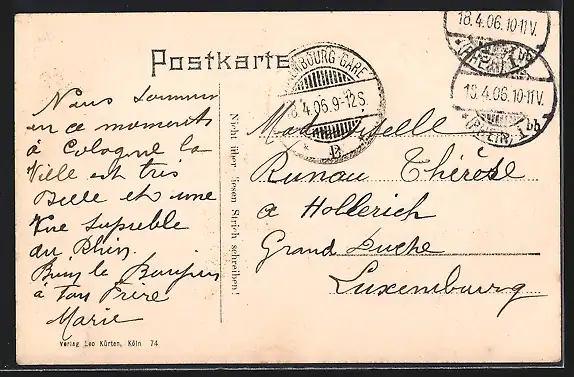 Postkarte
18.4.06.10-11V.
(RHEIN)
18.4.06.10-11V.
(RHEIN)
bb
LUXEMBOURG-GARE
18.4.06.9-12S.
Nous sommes
en ce moment
à Cologne la
Ville est très
Belle et une
Vue superble
du Rhin.
Bien le Bonjour
à ton frère
Marie
Nicht über diesen Strich schreiben!
Mademoiselle
Runau Thérèse
a Hollerich
Grand Duche
Luxembourg
Verlag Leo Kürten, Köln 74